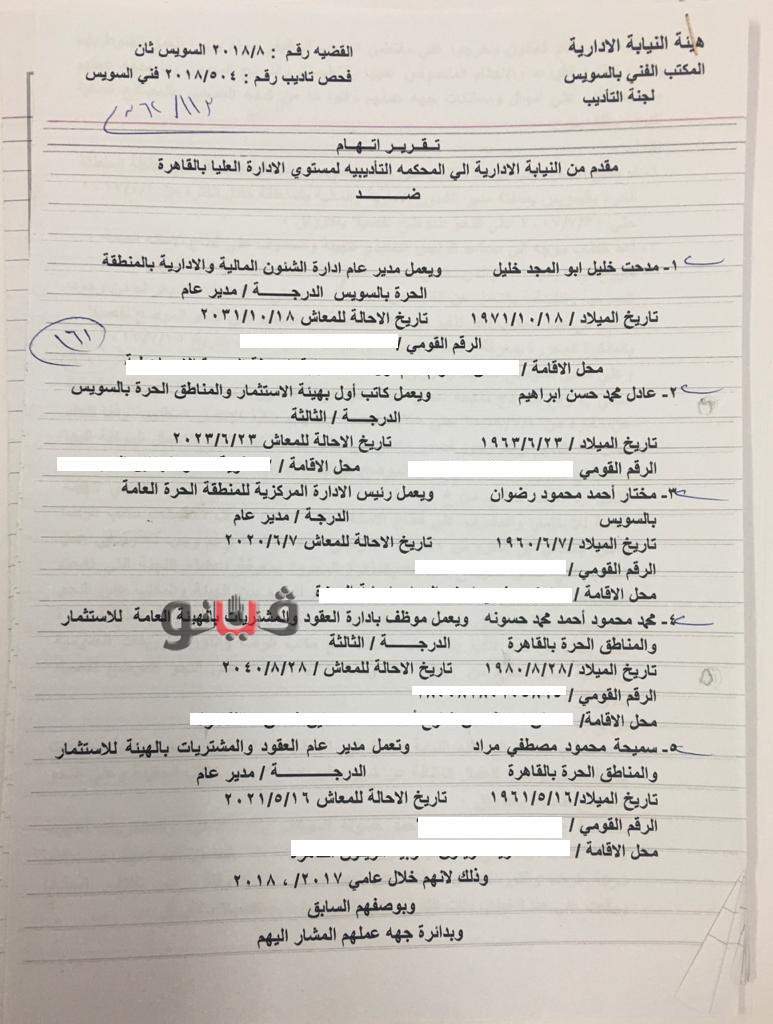 هيئة النيابة الادارية
القضيه رقم : ٢٠١٨/٨ السويس ثان
المكتب الفني بالسويس
فحص تاديب رقم : ٢٠١٨/٥٠٤ فني السويس
لجنة التأديب
تقرير اتهام
مقدم من النيابة الادارية الي المحكمه التأديبيه لمستوي الادارة العليا بالقاهرة
ضد
١- مدحت خليل ابو المجد خليل ويعمل مدير عام ادارة الشئون المالية والادارية بالمنطقة
الحرة بالسويس الدرجة / مدير عام
تاريخ الميلاد / ١٩٧١/١٠/١٨ تاريخ الاحالة للمعاش ٢٠٣١/١٠/١٨
الرقم القومي /
١٦١
محل الاقامة /
٢- عادل محمد حسن ابراهيم ويعمل كاتب أول بهيئة الاستثمار والمناطق الحرة بالسويس
الدرجة / الثالثة
تاريخ الميلاد / ١٩٦٣/٦/٢٣ تاريخ الاحالة للمعاش ٢٠٢٣/٦/٢٣
الرقم القومي / محل الاقامة /
٣- مختار أحمد محمود رضوان ويعمل رئيس الادارة المركزية للمنطقة الحرة العامة
بالسويس الدرجة / مدير عام
تاريخ الميلاد /١٩٦٠/٦/٧ تاريخ الاحالة للمعاش ٢٠٢٠/٦/٧
الرقم القومي /
محل الاقامة /
ڤيتو
٤- محمد محمود أحمد محمد حسونه ويعمل موظف بادارة العقود والمشتريات بالهيئة العامة للاستثمار
والمناطق الحرة بالقاهرة الدرجة / الثالثة
تاريخ الميلاد /١٩٨٠/٨/٢٨ تاريخ الاحالة للمعاش /٢٠٤٠/٨/٢٨
الرقم القومي /
محل الاقامة/
٥- سميحة محمود مصطفي مراد وتعمل مدير عام العقود والمشتريات بالهيئة للاستثمار
والمناطق الحرة بالقاهرة الدرجة / مدير عام
تاريخ الميلاد/١٩٦١/٥/١٦ تاريخ الاحالة للمعاش ٢٠٢١/٥/١٦
الرقم القومي /
محل الاقامة /
وذلك لانهم خلال عامي ٢٠١٧/ ، ٢٠١٨
وبوصفهم السابق
وبدائرة جهه عملهم المشار اليهم